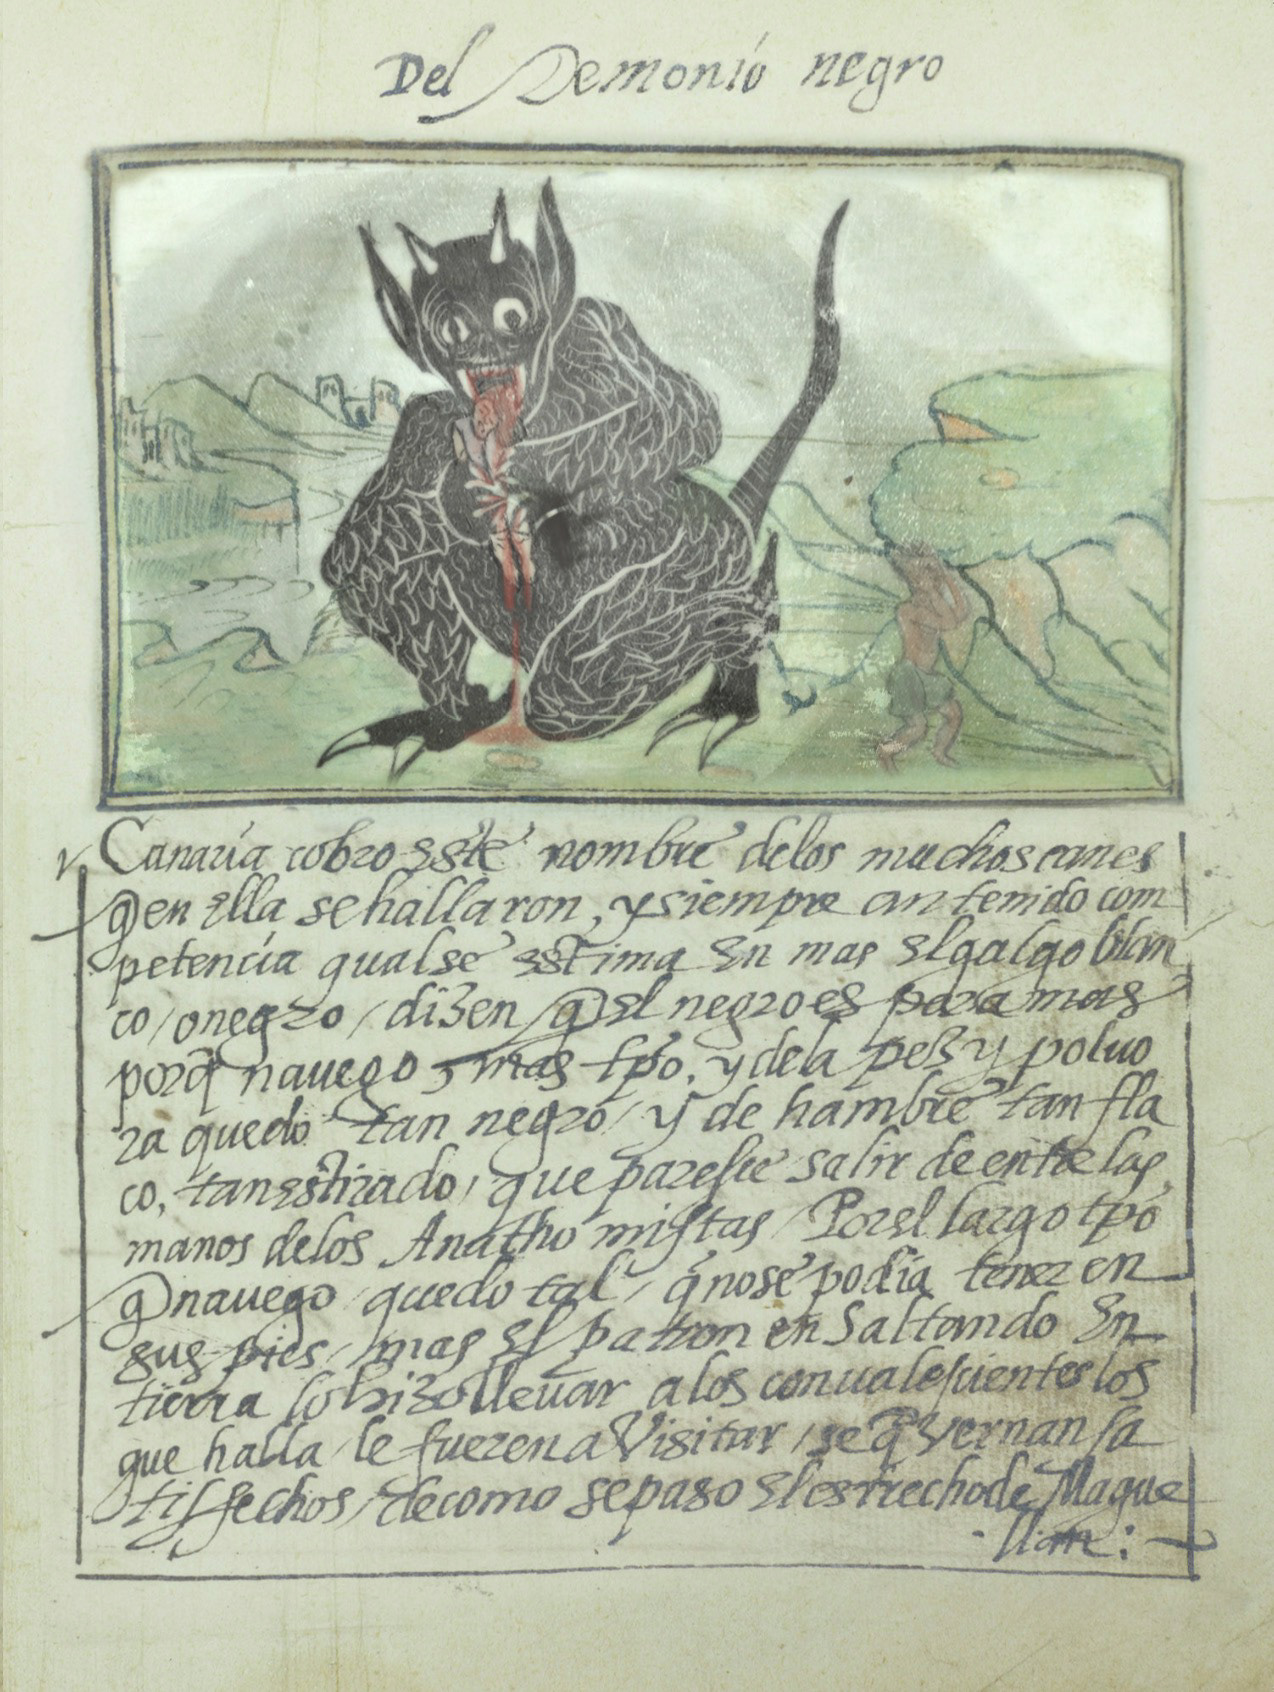 Del Demonio negro
Canaria cobro este nombre delos muchos canes
q̃ en ella se hallaron, y siempre an tenido com
petencia qual se estima en mas el galgo blan
co / o negro / dizen q̃ el negro es para mas
porq̃ navego mas tp̃o, y dela pez y poluo
ra quedo tan negro / y de hambre tan fla
co, tan estirado / que paresçe salir de entre las
manos delos Anathomistas / Por el largo tp̃o
q̃ nauego quedo tal / q̃ no se podia tener en
sus pies / mas el patron en saltando en
tierra lo hizo lleuar a los conualesçientes los
que halla le fueren a Visitar / se q̃ vernan sa
tisfechos / de como se paso el estrecho de Mague
llan: